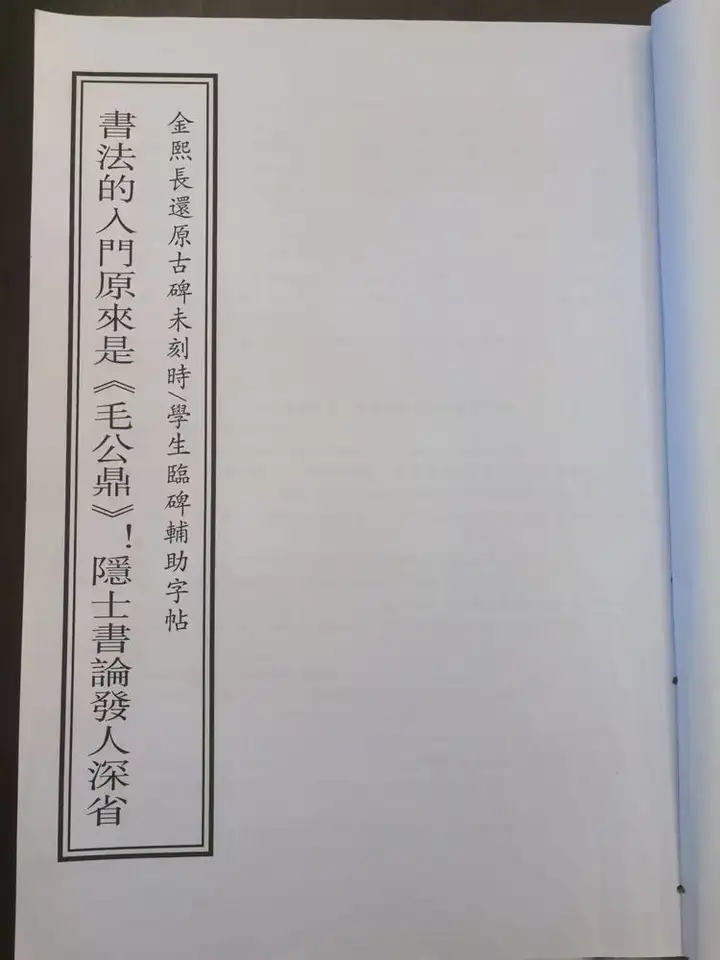 金熙長還原古碑未刻時/學生臨碑輔助字帖
書法的入門原來是《毛公鼎》!隱士書論發人深省